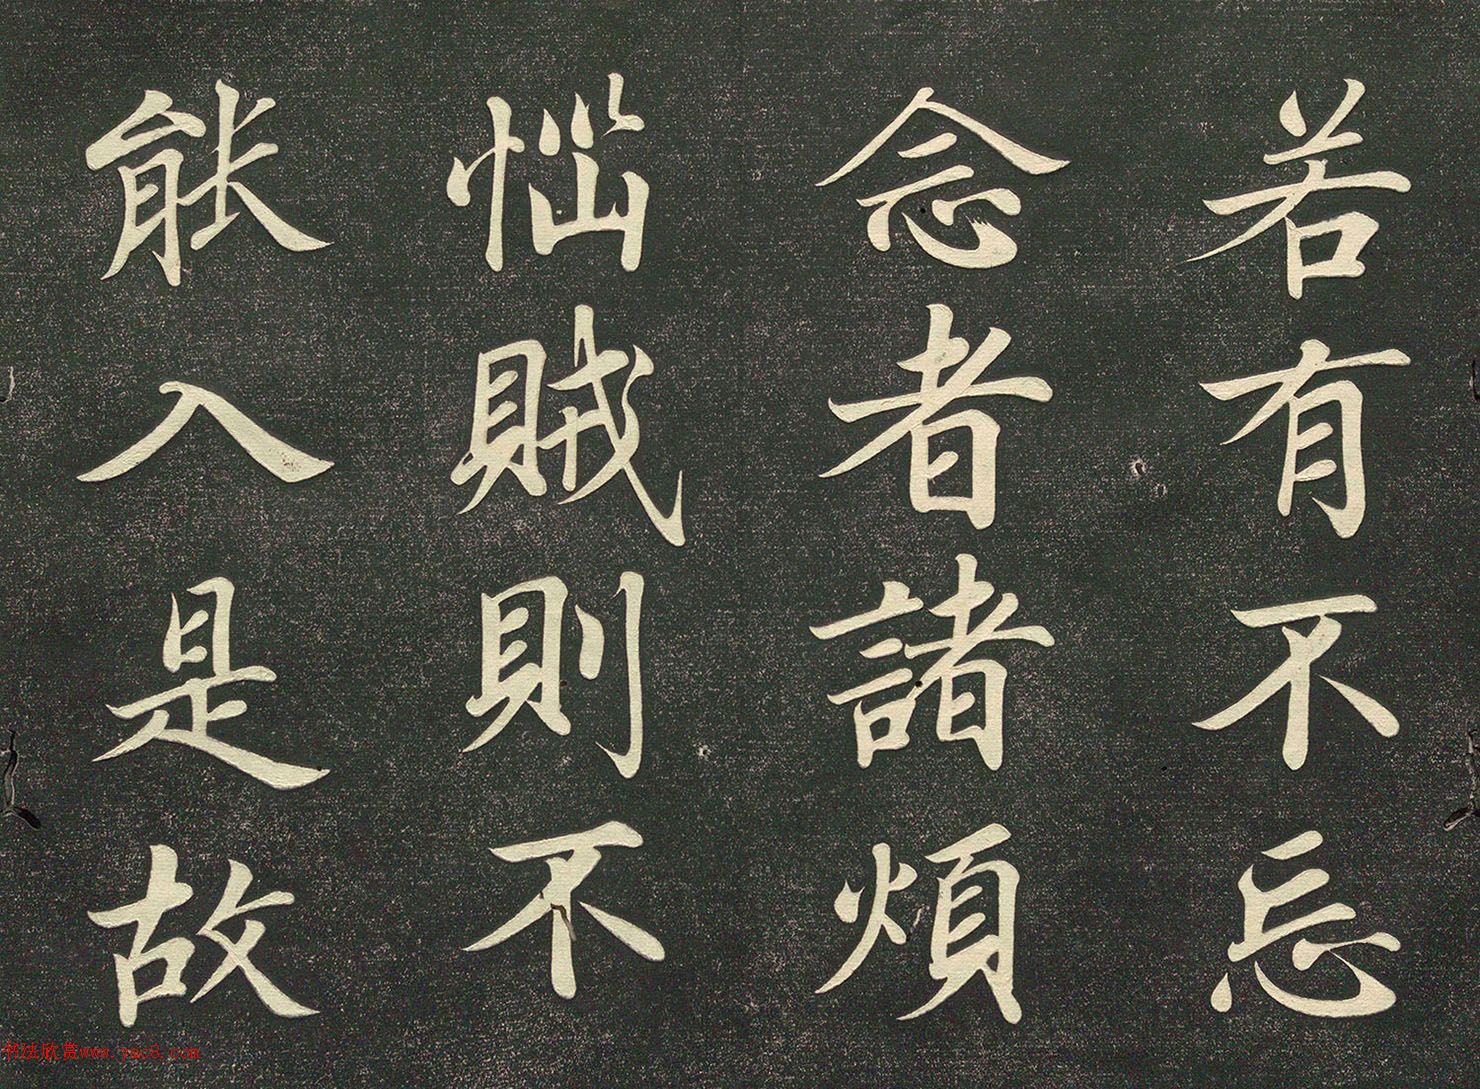 若有不忘
念者諸煩
惱賊則不
能入是故
书法欣赏www.yac8.com